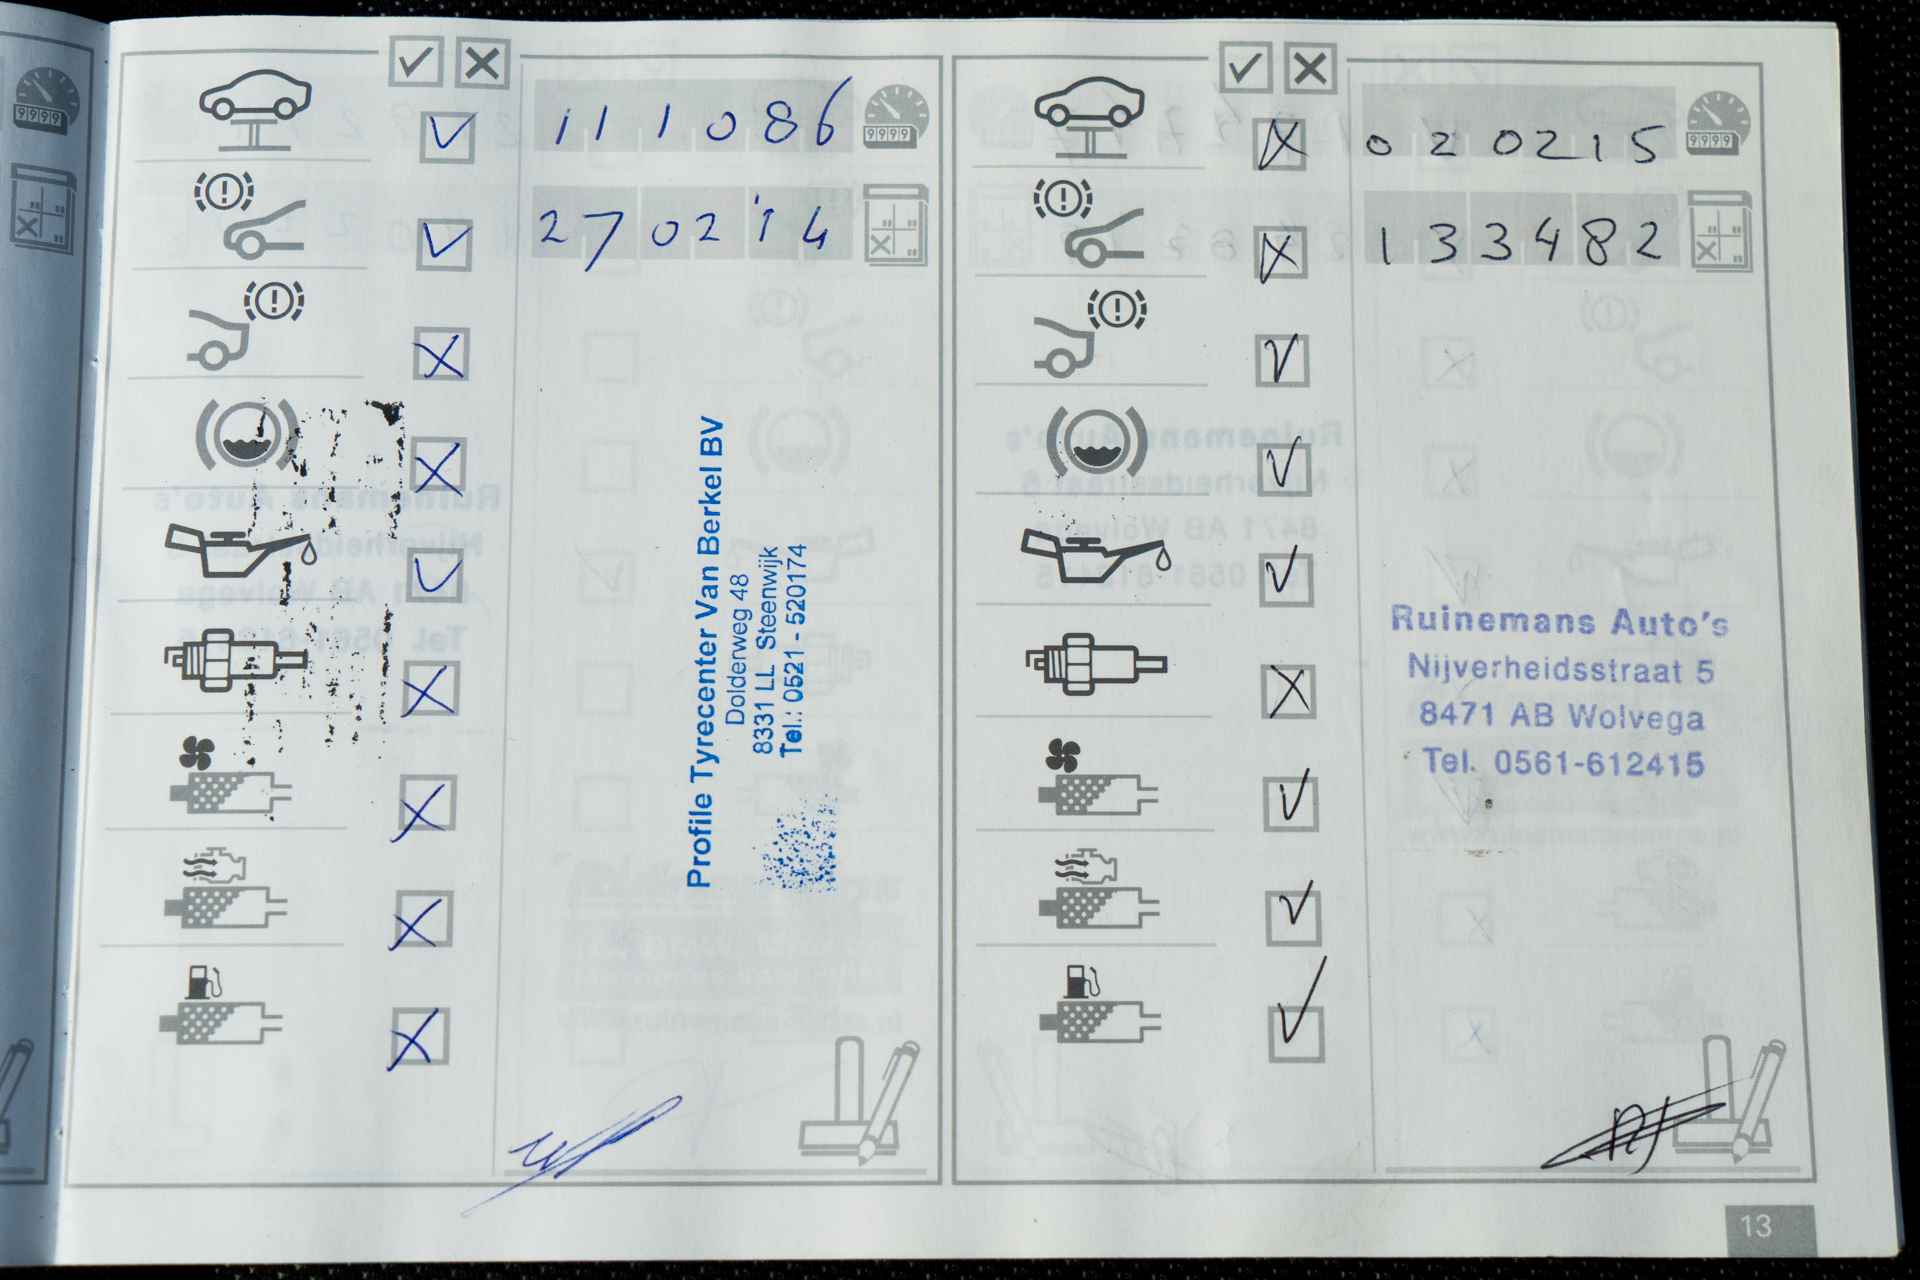 111086
9999
270214
Profile Tyrecenter Van Berkel BV
Dolderweg 48
8331 LL Steenwijk
Tel.: 0521 - 520174
020215
9999
133482
Ruinemans Auto's
Nijverheidsstraat 5
8471 AB Wolvega
Tel. 0561-612415
13
9999